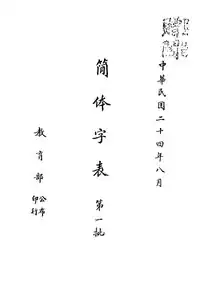 中華民国二十四年八月
简体字表 第一批
教育部 公布
印行